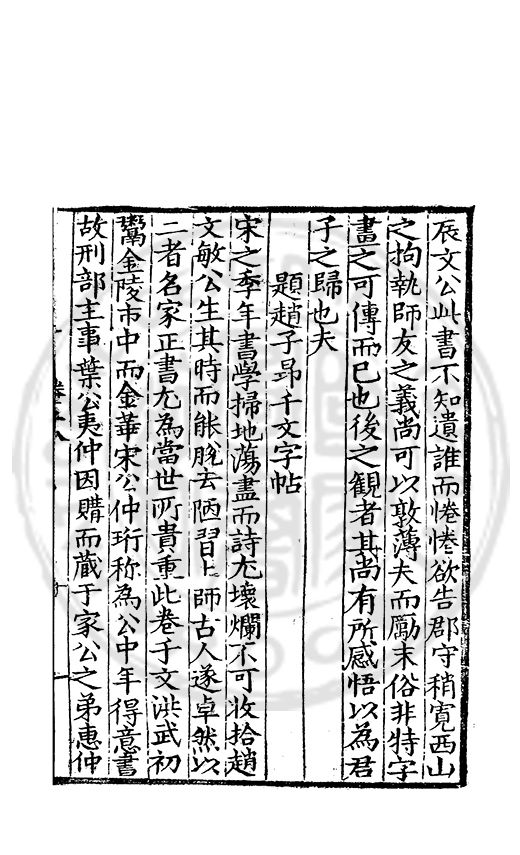 辰文公此書不知遺誰而惓惓欲告郡守稍寛西山
之拘執師友之義尚可以敦薄夫而厲末俗非特字
畫之可傳而已也後之觀者其尚有所感悟以為君
子之歸也夫
題趙子昂千文字帖
宋之季年書學掃地蕩盡而詩尤壞爛不可收拾趙
文敏公生其時而能脫去陋習上師古人遂卓然以
二者名家正書尤為當世所貴重此卷千文洪武初
鬻金陵市中而金華宋公仲珩称為公中年得意書
故刑部主事葉公夷仲因購而藏于家公之弟惠仲